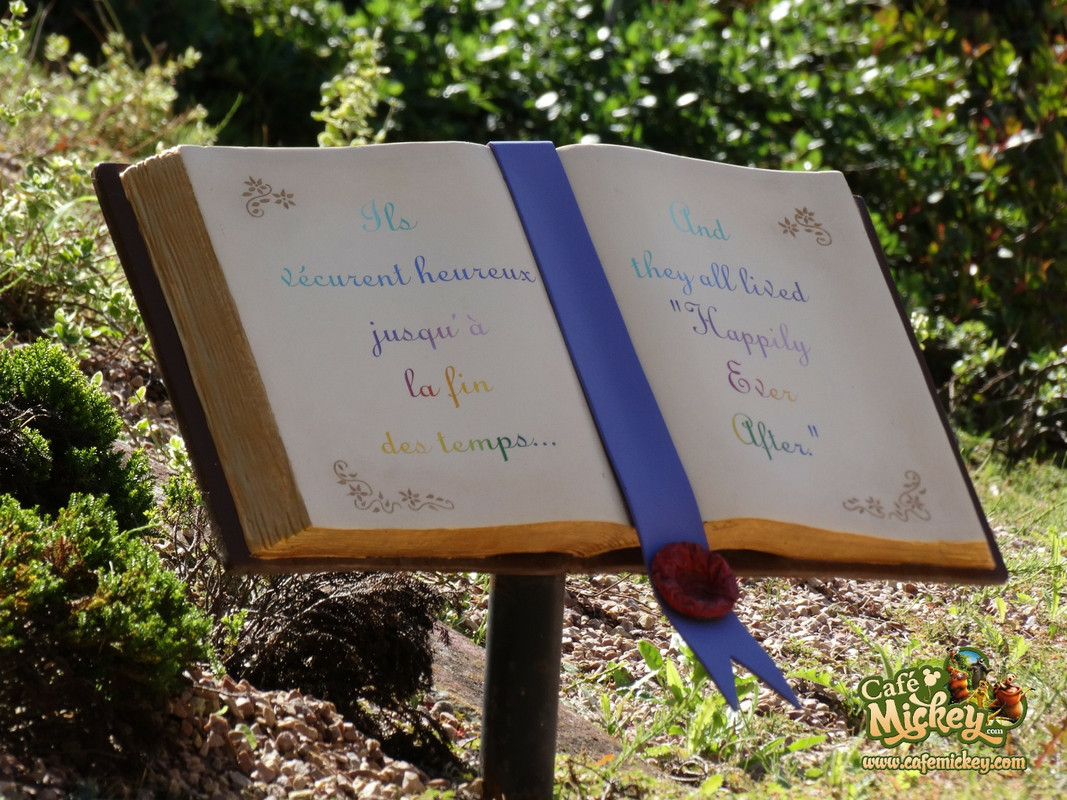 Ils
vécurent heureux
jusqu'à
la fin
des temps...
And
they all lived
"Happily
Ever
After."
Café
Mickey.com
www.cafemickey.com